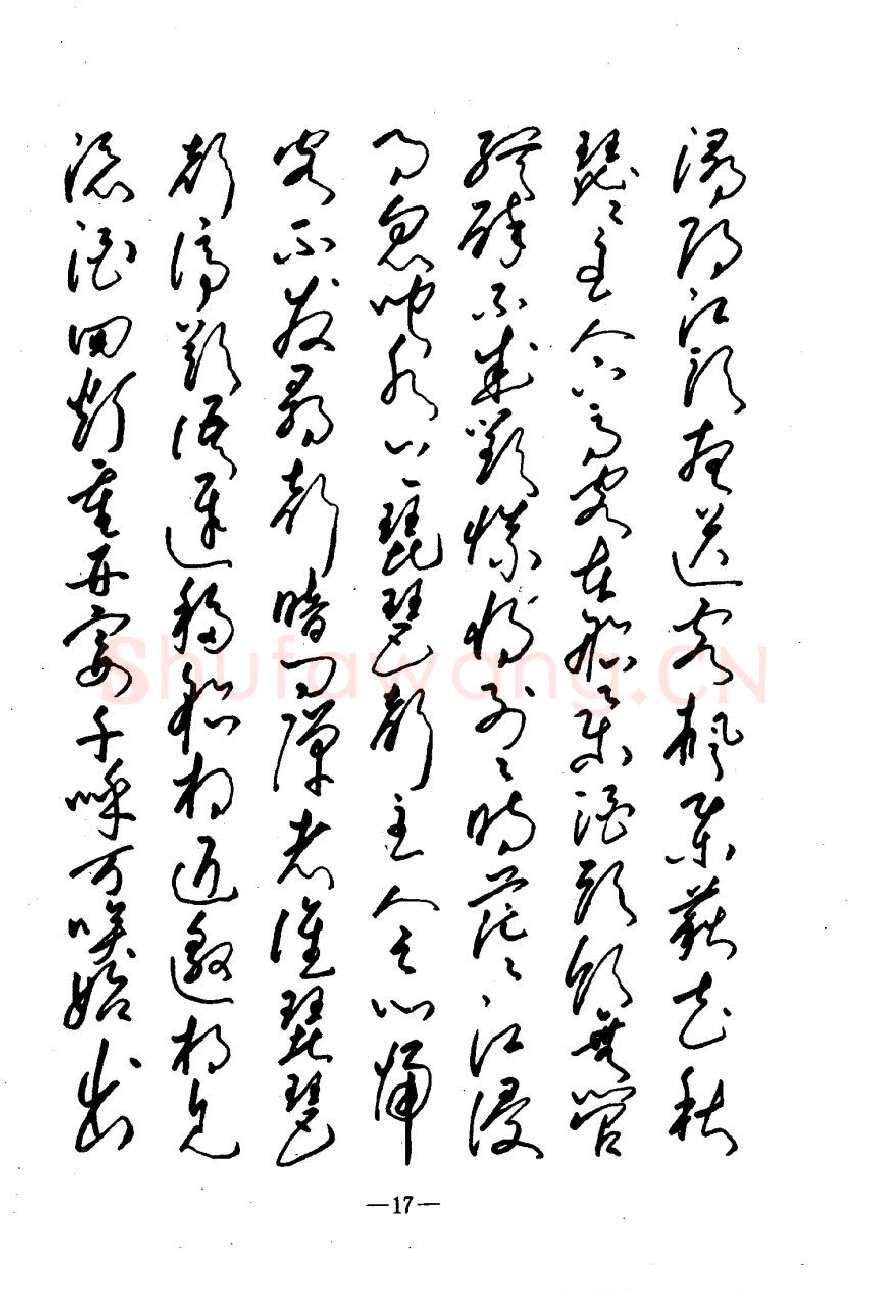 潯陽江頭夜送客楓葉荻花秋
瑟々主人下馬客在船舉酒欲飲無管
絃醉不成歡慘將別々時茫々江浸
月忽聞水上琵琶聲主人忘歸
客不發尋聲暗問彈者誰琵琶
聲停欲語遲移船相近邀相見
添酒回燈重開宴千呼万喚始出
—17—
shufawang.CN